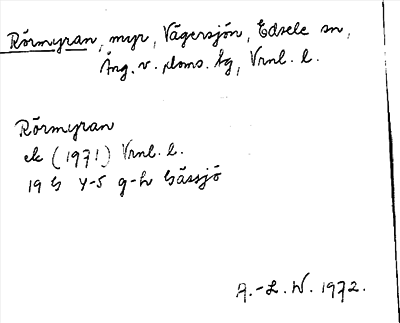 Rörmyran, myr, Vägersjön, Edsele sn,
Ång. v. doms. hg, Vrnl. l.
Rörmyran
ek (1971) Vrnl. l.
19 G 4-5 g-h Gåssjö
A.-L. W. 1972.